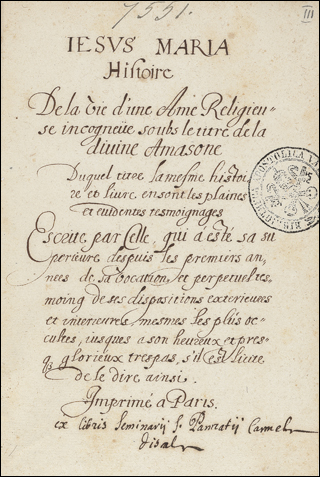 7551.
III
IESVS MARIA
Histoire
De la vie d'une Ame Religieu-
se incogneüe soubs le titre de la
divine Amasone
Duquel titre la mesme histoi-
re et livre en sont les plaines
et evidents tesmoignages
Escrite par Celle, qui a esté sa su
perieure despuis les premiers an-
nees de sa vocation, et perpetuel tes-
moing de ses dispositions exterieures
et interieures mesmes les plus oc-
cultes, iusques a son heureux et pres-
q3 glorieux trespas, s'il est licite
de le dire ainsi.
Imprimé a Paris.
ex libris Seminarij S. Pancratij Carmel